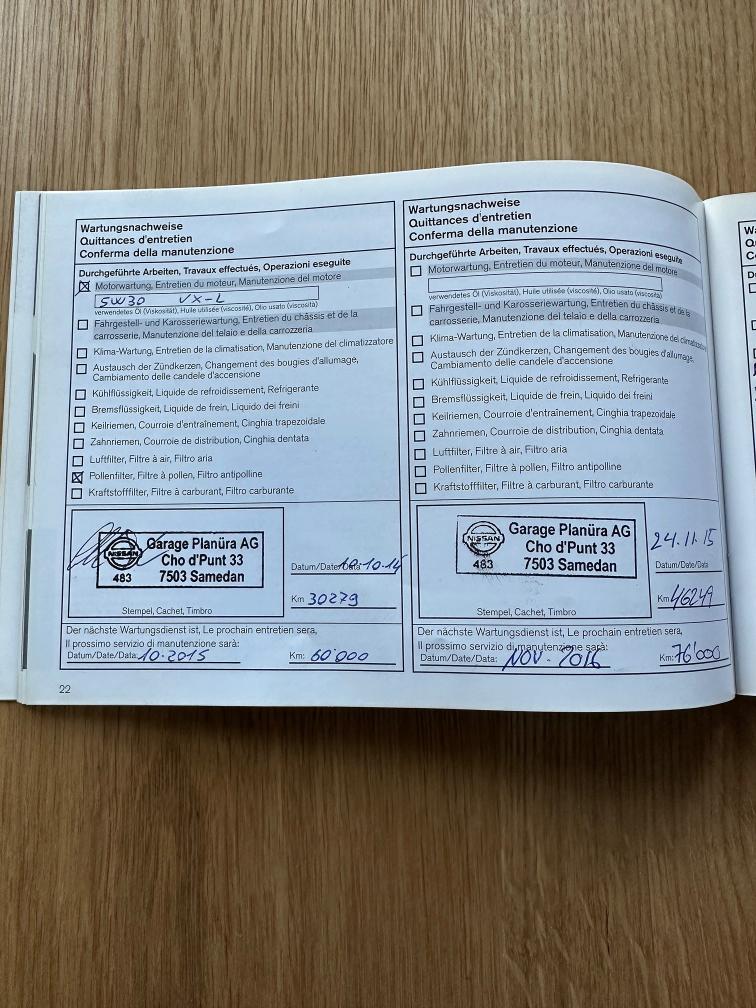 Wartungsnachweise
Quittances d'entretien
Conferma della manutenzione
Durchgeführte Arbeiten, Travaux effectués, Operazioni eseguite
Motorwartung, Entretien du moteur, Manutenzione del motore
5W30 VX-L
verwendetes Öl (Viskosität), Huile utilisée (viscosité), Olio usato (viscosità)
Fahrgestell- und Karosseriewartung, Entretien du châssis et de la
carrosserie, Manutenzione del telaio e della carrozzeria
Klima-Wartung, Entretien de la climatisation, Manutenzione del climatizzatore
Austausch der Zündkerzen, Changement des bougies d'allumage,
Cambiamento delle candele d'accensione
Kühlflüssigkeit, Liquide de refroidissement, Refrigerante
Bremsflüssigkeit, Liquide de frein, Liquido dei freini
Keilriemen, Courroie d'entraînement, Cinghia trapezoidale
Zahnriemen, Courroie de distribution, Cinghia dentata
Luftfilter, Filtre à air, Filtro aria
Pollenfilter, Filtre à pollen, Filtro antipolline
Kraftstofffilter, Filtre à carburant, Filtro carburante
NISSAN
483
Garage Planüra AG
Cho d'Punt 33
7503 Samedan
Stempel, Cachet, Timbro
Datum/Date/Data 10.14
Km 30279
Der nächste Wartungsdienst ist, Le prochain entretien sera,
Il prossimo servizio di manutenzione sarà:
Datum/Date/Data: 10.2015 Km: 60'000
22
Wartungsnachweise
Quittances d'entretien
Conferma della manutenzione
Durchgeführte Arbeiten, Travaux effectués, Operazioni eseguite
Motorwartung, Entretien du moteur, Manutenzione del motore
verwendetes Öl (Viskosität), Huile utilisée (viscosité), Olio usato (viscosità)
Fahrgestell- und Karosseriewartung, Entretien du châssis et de la
carrosserie, Manutenzione del telaio e della carrozzeria
Klima-Wartung, Entretien de la climatisation, Manutenzione del climatizzatore
Austausch der Zündkerzen, Changement des bougies d'allumage,
Cambiamento delle candele d'accensione
Kühlflüssigkeit, Liquide de refroidissement, Refrigerante
Bremsflüssigkeit, Liquide de frein, Liquido dei freini
Keilriemen, Courroie d'entraînement, Cinghia trapezoidale
Zahnriemen, Courroie de distribution, Cinghia dentata
Luftfilter, Filtre à air, Filtro aria
Pollenfilter, Filtre à pollen, Filtro antipolline
Kraftstofffilter, Filtre à carburant, Filtro carburante
NISSAN
483
Garage Planüra AG
Cho d'Punt 33
7503 Samedan
Stempel, Cachet, Timbro
24.11.15
Datum/Date/Data
Km
Der nächste Wartungsdienst ist, Le prochain entretien sera,
Il prossimo servizio di manutenzione sarà:
Datum/Date/Data: NOV. 2016 Km: 76'000